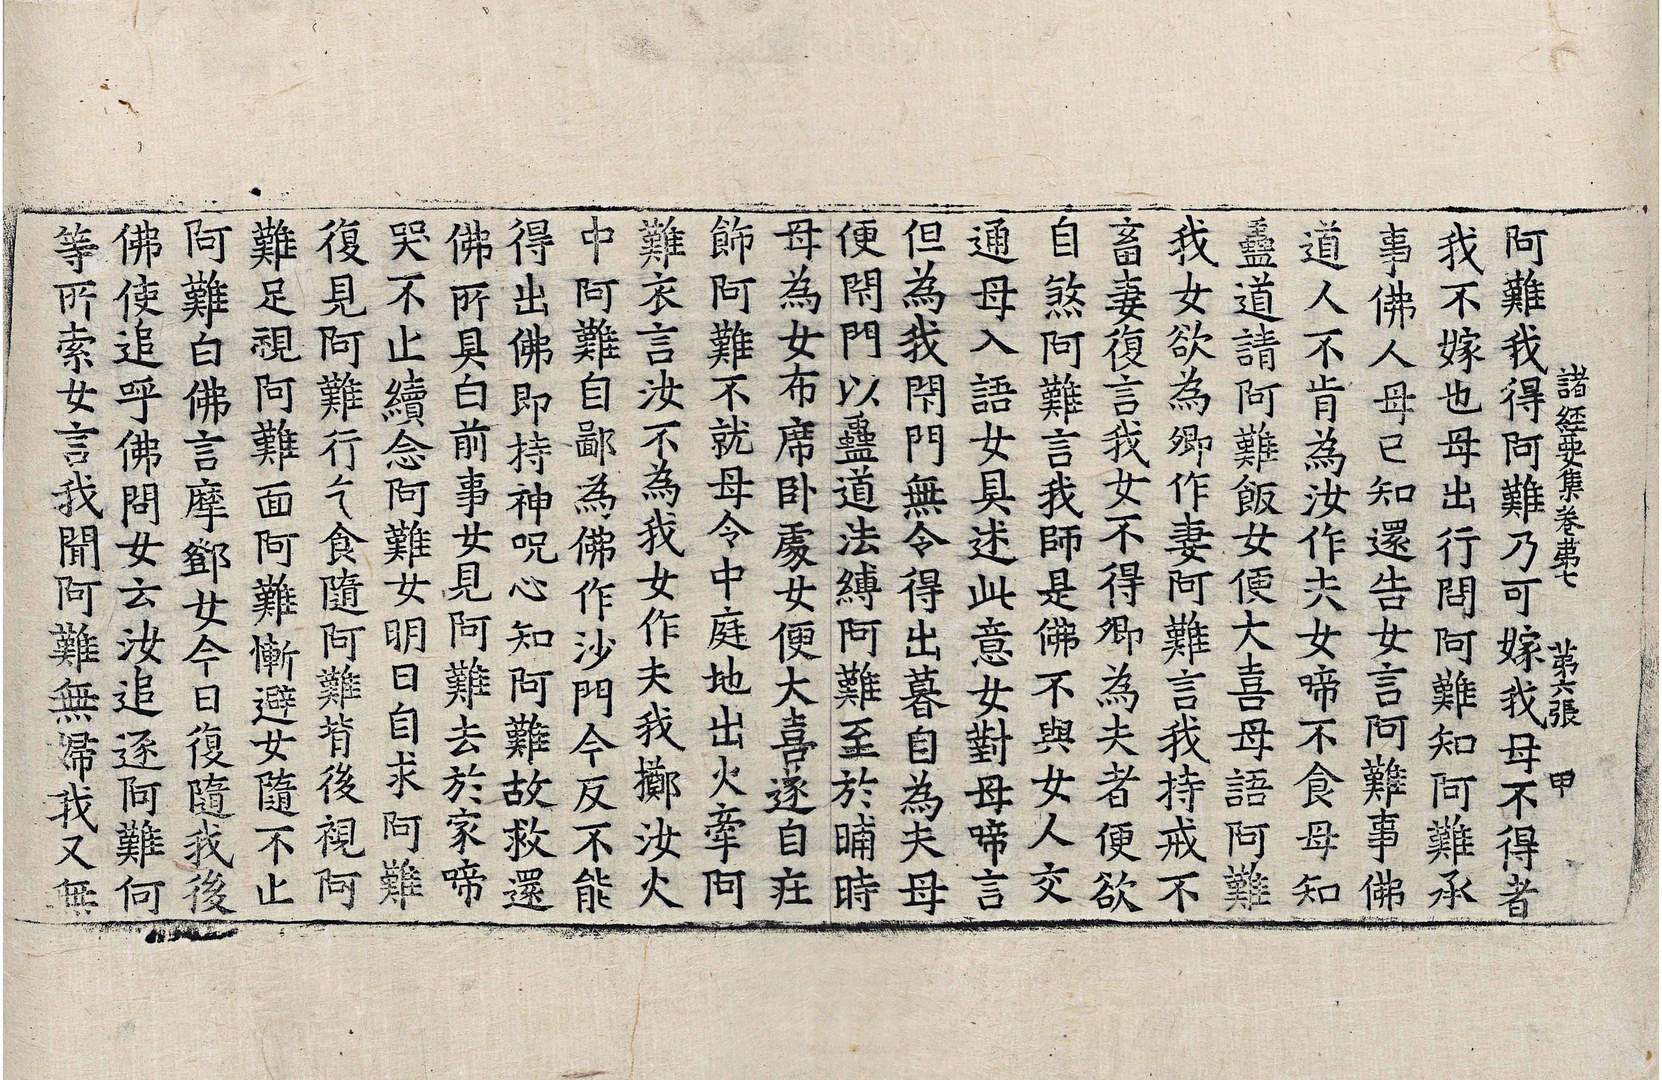 諸經要集卷第七 第六張 甲
阿難我得阿難乃可嫁我母不得者
我不嫁也母出行問阿難知阿難承
事佛人母已知還告女言阿難事佛
道人不肯為汝作夫女啼不食母知
蠱道請阿難飯女便大喜母語阿難
我女欲為卿作妻阿難言我持戒不
畜妻復言我女不得卿為夫者便欲
自煞阿難言我師是佛不與女人交
通母入語女具述此意女對母啼言
但為我閇門無令得出暮自為夫母
便閇門以蠱道法縛阿難至於晡時
母為女布席卧處女便大喜遂自莊
飾阿難不就母令中庭地出火牽阿
難衣言汝不為我女作夫我擲汝火
中阿難自鄙為佛作沙門今反不能
得出佛即持神呪心知阿難故救還
佛所具白前事女見阿難去於家啼
哭不止續念阿難女明日自求阿難
復見阿難行乞食隨阿難背後視阿
難足視阿難面阿難慚避女隨不止
阿難白佛言摩鄧女今日復隨我後
佛使追呼佛問女云汝追逐阿難何
等所索女言我聞阿難無婦我又無